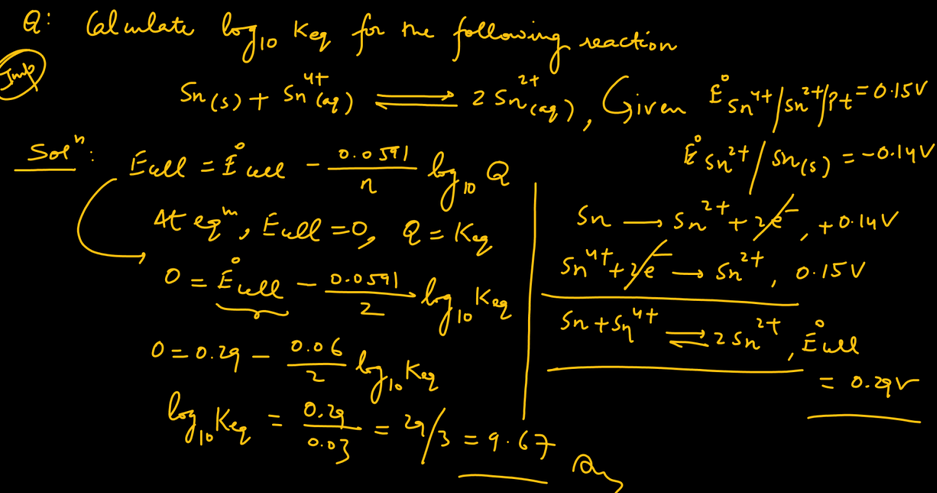 Q: Calculate log₁₀ Keq for the following reaction
Imp
Sn(s) + Sn⁴⁺(aq) ⇌ 2 Sn²⁺(aq), Given E° Sn⁴⁺/Sn²⁺/Pt = 0.15V
E° Sn²⁺/Sn(s) = -0.14V
Solⁿ: Ecell = E°cell - 0.0591/n log₁₀ Q
At eqᵐ, Ecell = 0, Q = Keq
0 = E°cell - 0.0591/2 log₁₀ Keq
0 = 0.29 - 0.06/2 log₁₀ Keq
log₁₀ Keq = 0.29/0.03 = 29/3 = 9.67 Ans
Sn → Sn²⁺ + 2e⁻, +0.14V
Sn⁴⁺ + 2e⁻ → Sn²⁺, 0.15V
Sn + Sn⁴⁺ ⇌ 2 Sn²⁺, E°cell
= 0.29V